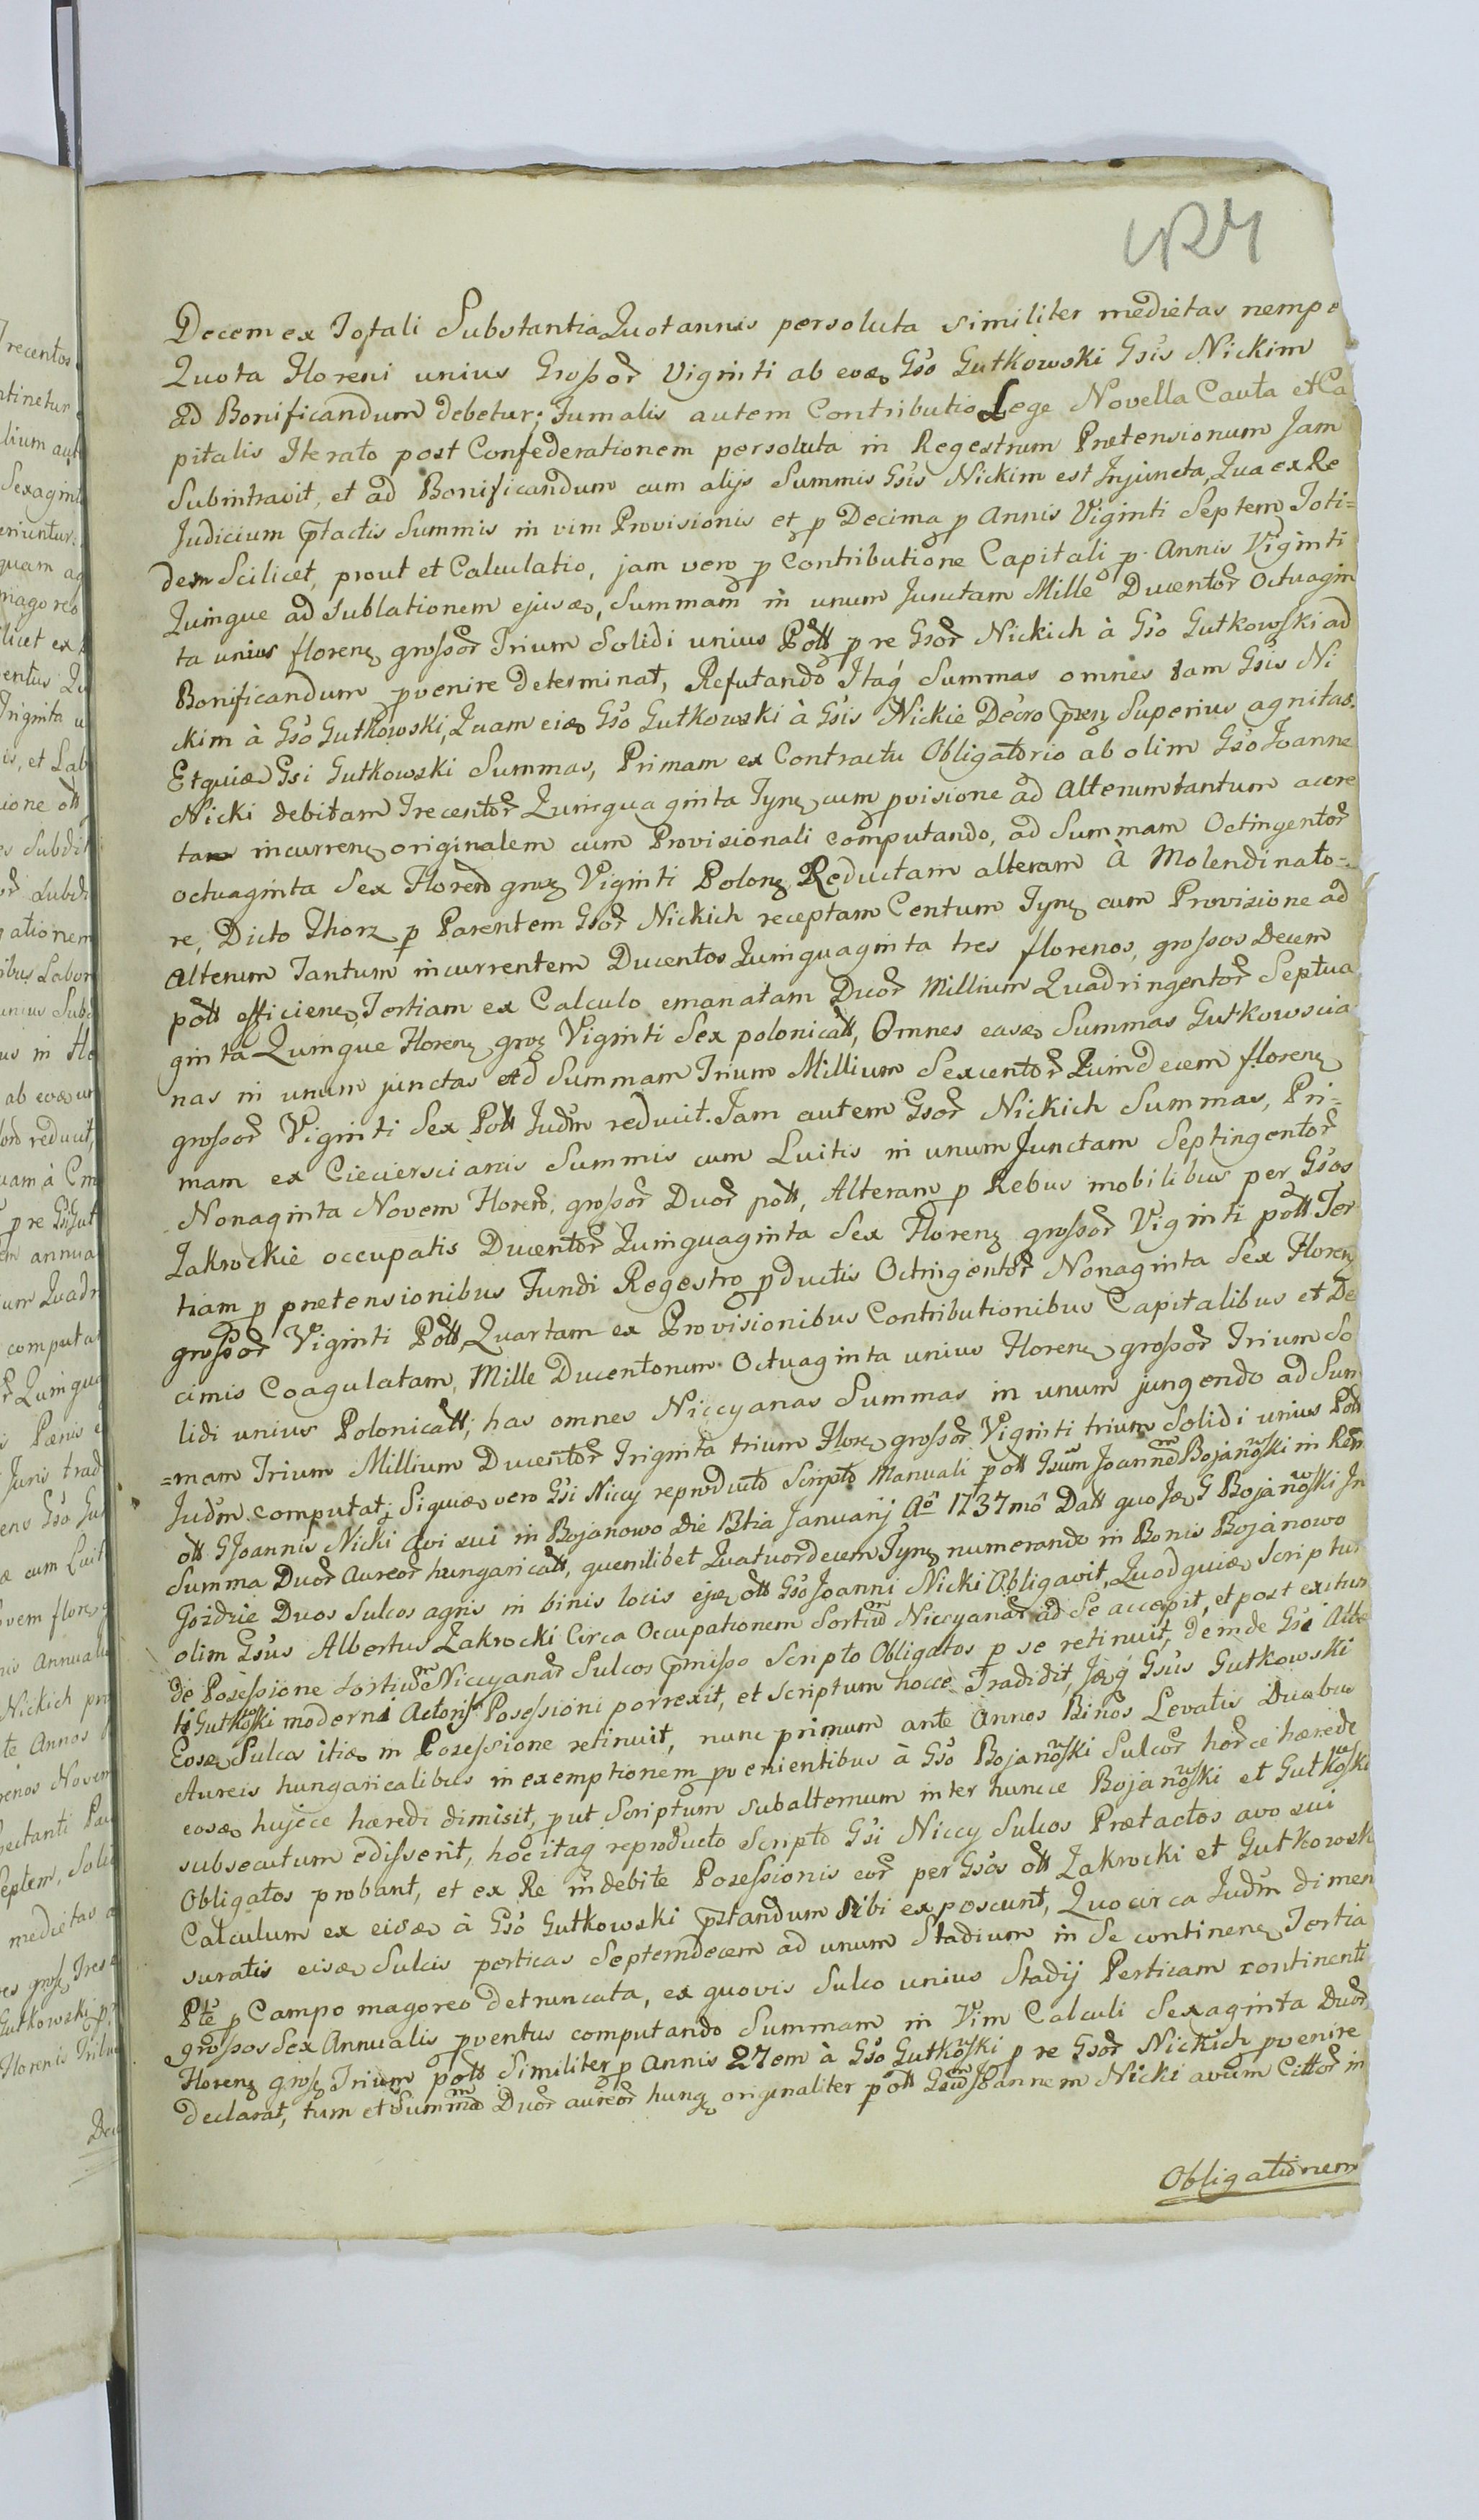 Decem ex Totali Substantia Quotannis persoluta similiter medietas nempe
Quota Floreni unius Grossor Viginti ab eod Gso Gutkowski Gsis Nickim
ad Bonificandum debetur; Fumalis autem Contributio Lege Novella Cauta et Ca
pitalis Iterato post Confederationem persoluta in Regestrum Prætensionum Jam
Subintravit, et ad Bonificandum cum alijs Summis Gsis Nickim est Injuncta, Qua ex Re
Judicium ptactis Summis in vim Provisionis et p Decima p Annis Viginti Septem Toti=
dem Scilicet, prout et Calculatio, jam vero p Contributione Capitali p Annis Viginti
Quinque ad Sublationem ejusd, Summam in unum Junctam Mille Ducentor Octuagin
ta unius floren grossor Trium Solidi unius Poll p re Gsor Nickich à Gso Gutkowski ad
Bonificandum pvenire determinat, Refutando Itaq Summas omnes tam Gsis Ni
ckim à Gso Gutkowski, Quam eid Gso Gutkowski à Gsis Nickie Decro pren Superius agnitas.
Et quid Gsi Gutkowski Summas, Primam ex Contractu Obligatorio ab olim Gso Joanne
Nicki debitam Trecentor Quinquaginta Tynf cum pvisione ad Alterumtantum accre
tam incurren originalem cum Provisionali computando, ad Summam Octingentor
octuaginta Sex Floreno gros Viginti Polon Reductam alteram à Molendinato=
re, Dicto Thorz p Parentem Gsor Nickich receptam Centum Tynf cum Provisione ad
alterum Tantum incurrentem Ducentos Quinquaginta tres florenos, grossos Decem
poll efficien, Tertiam ex Calculo emanatam Duor Millium Quadringentor Septua
ginta Quinque Floren gros Viginti Sex polonicall, Omnes easd Summas Gutkowscia
nas in unum junctas ad Summam Trium Millium Sexcentor Quindecem floren
grossor Viginti Sex Poll Judm reducit. Jam autem Gsor Nickich Summas, Pri=
mam ex Ciecierscianis Summis cum Luitis in unum Junctam Septingentor
Nonaginta Novem Floreno, grossor Duor poll, Alteram p Rebus mobilibus per Gsos
Zakrockie occupatis Ducentor Quinquaginta Sex Floren grossor Viginti poll Ter
tiam p prætensionibus Fundi Regestro pductis Octingentor Nonaginta Sex Floren
grossor Viginti Poll Quartam ex Provisionibus Contributionibus Capitalibus et De
cimis Coagulatam, Mille Ducentorum Octuaginta unius Floren grossor Trium So
lidi unius Polonicall; has omnes Niccyanas Summas in unum jungendo ad Sum
=mam Trium Millium Ducentor Triginta trium Flore grossor Viginti trium Solidi unius Poll
Judm computat; Siquid vero Gsi Niccy reproducto Scripto Manuali p oll Gsum Joannem Bojanowski in Rem
oll GJoannis Nicki Avi sui in Bojanowo Die 13tia Januarij Ao 1737mo Datt quo Id G Bojanowski In
Summa Duor Aureor hungaricall, quemlibet Quatuordecem Tynf numerando in Bonis Bojanowo
Gozdzie Duos Sulcos agris in binis locis ejd oll Gso Joanni Nicki Obligavit, Quod quid Scriptum
olim Gsus Albertus Zakrocki Circa Occupationem Sortium Niccyanar ad Se accepit, et post exitum
de Posessione Sortium Niccyanar Sulcos pmisso Scripto Obligatos p se retinuit, deinde Gsi Albe
ti Gutkowski moderni Actoris Posessioni porrexit, et Scriptum hocce Tradidit, Idq Gsus Gutkowski
Eosd Sulcos itid in Posessione retinuit, nunc primum ante Annos Binos Levatis Duabus
Aureis hungaricalibus in exemptionem pvenientibus à Gso Bojanowski Sulcor horce hærede
eosd hujce hæredi dimisit, put Scriptum subalternum inter huncce Bojanowski et Gutkowski
subsecutum edisserit, hoc itaq reproducto Scripto Gsi Niccy Sulcos Prætactos avo sui
Obligatos probant, et ex Re indebite Posessionis eor per Gsos oll Zakrocki et Gutkowsk
Calculum ex eisd à Gso Gutkowski pstandum sibi exposcunt, Quocirca Judm dimen
suratis eisd Sulcis perticas Septemdecem ad unum Stadium in Se continen Tertia
Pte p Campo magoreo detruncata, ex quovis Sulco unius Stadij Perticam continenti
grossos Sex Annualis pventus computando Summam in Vim Calculi Sexaginta Duor
Floren gros Trium poll Similiter p Annis 27em à Gso Gutkowski p re Gsor Nickich pvenire
declarat, tum et Summa Duor aureor hung originaliter p oll Gsum Joannem Nicki avum Cittor in
Obligationem